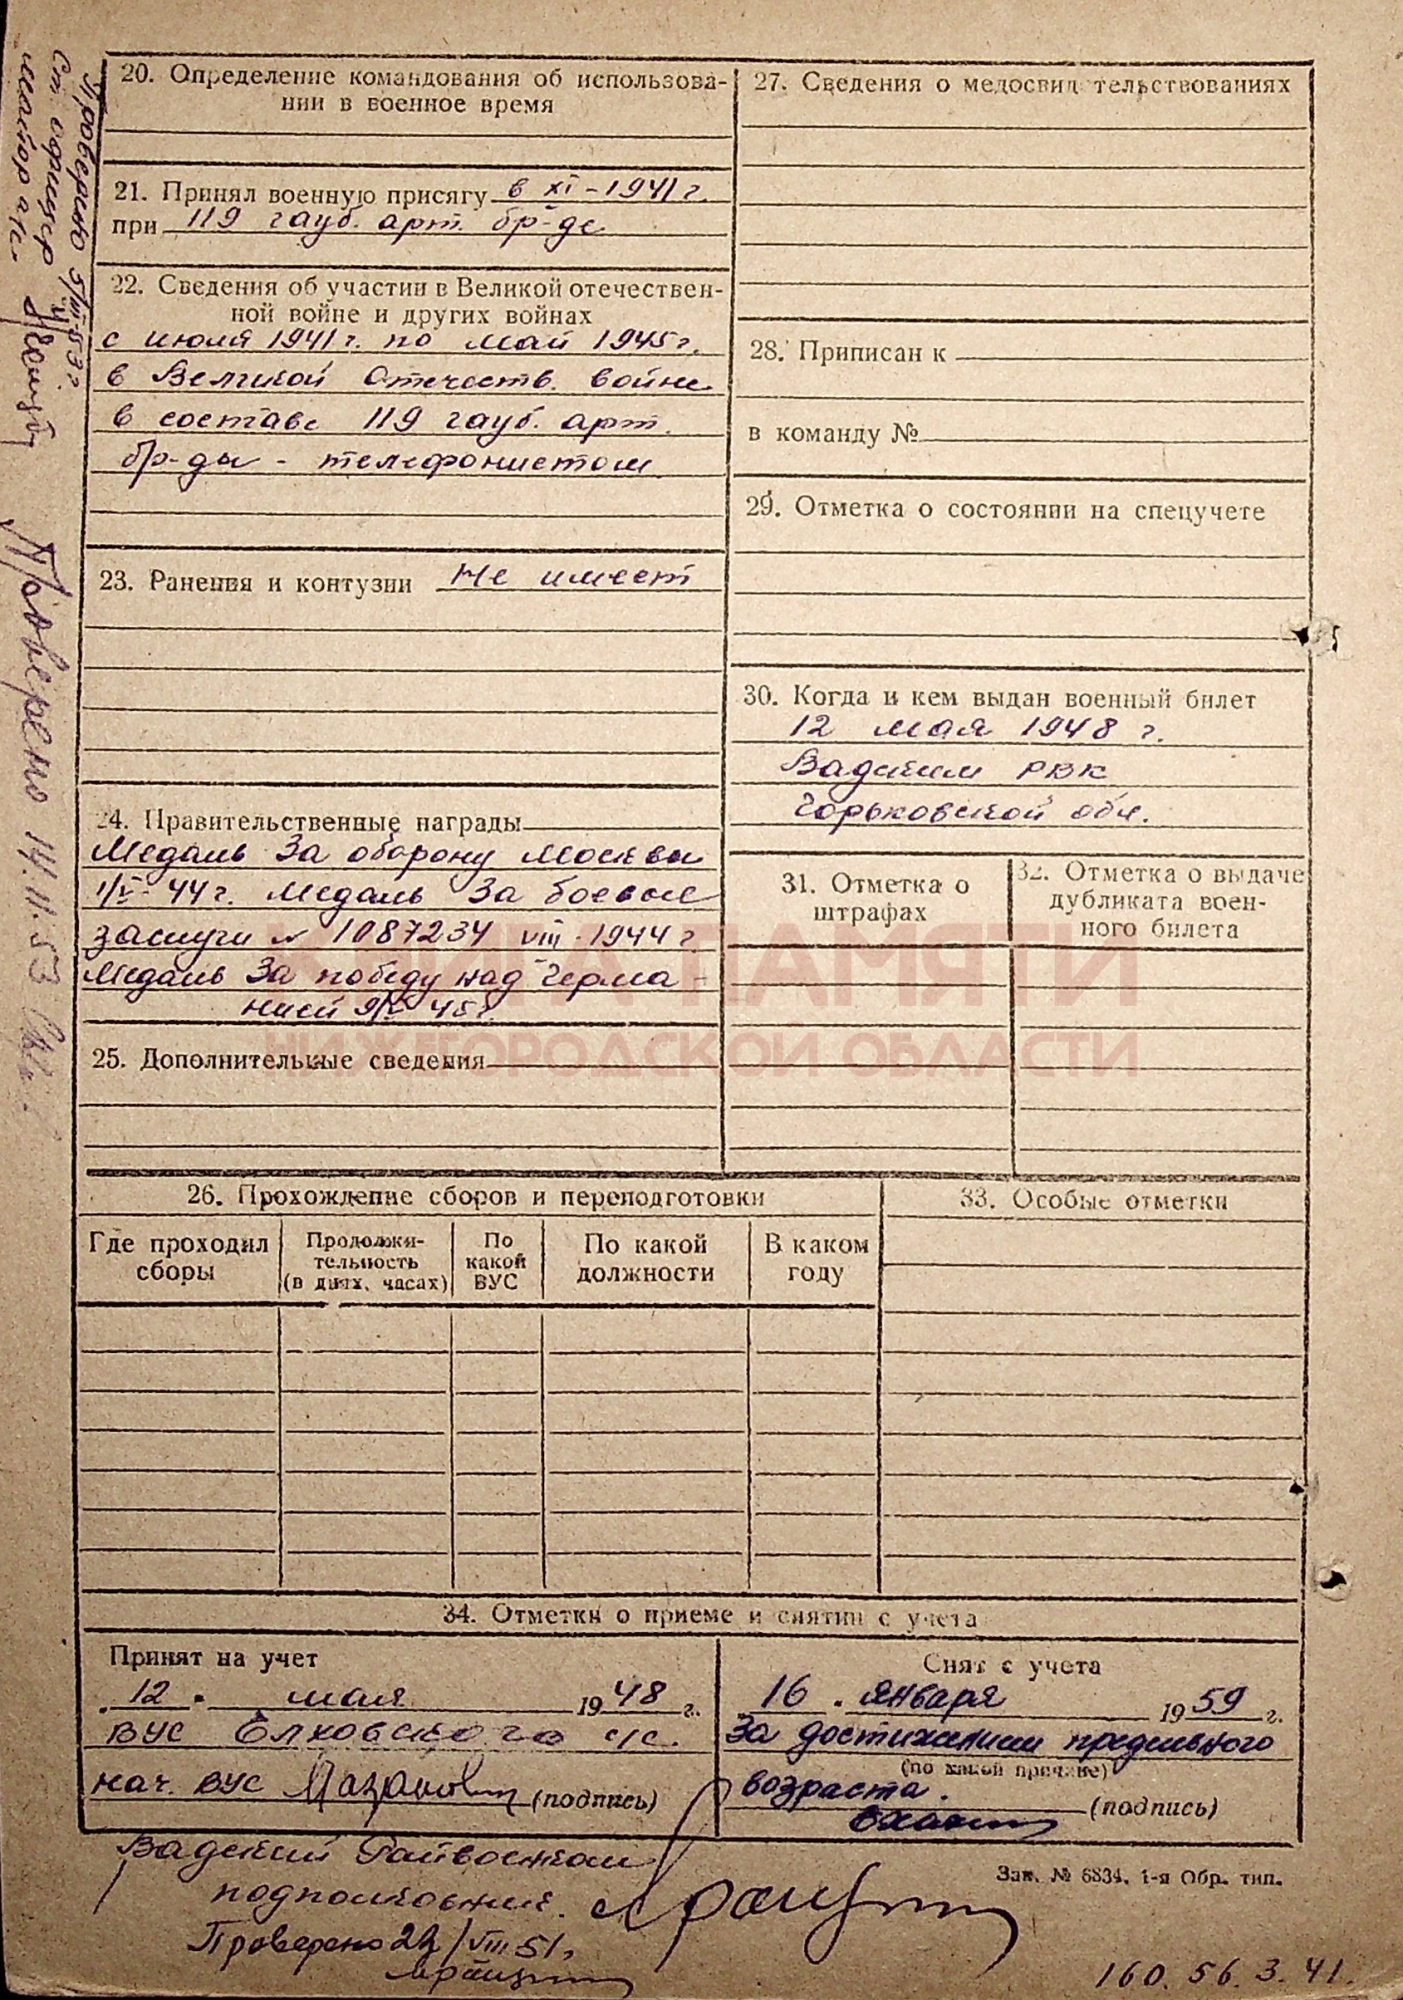 20. Определение командования об использова-
нии в военное время
21. Принял военную присягу в XI - 1941 г.
при 119 гауб. арт. бр-де
22. Сведения об участии в Великой отечествен-
ной войне и других войнах
с июля 1941 г. по май 1945 г.
в Великой Отечеств. войне
в составе 119 гауб. арт.
бр-ды - телефонистом
23. Ранения и контузии Не имеет
24. Правительственные награды
Медаль За оборону Москвы
1/V - 44 г. Медаль За боевые
заслуги № 1087234 VIII - 1944 г
Медаль За победу над Герма-
нией 9/V 45 г.
25. Дополнительные сведения
27. Сведения о медосвидетельствованиях
28. Приписан к
в команду №
29. Отметка о состоянии на спецучете
30. Когда и кем выдан военный билет
12 мая 1948 г.
Вадским РВК
Горьковской обл.
31. Отметка о
штрафах
32. Отметка о выдаче
дубликата воен-
ного билета
КНИГА ПАМЯТИ
НИЖЕГОРОДСКОЙ ОБЛАСТИ
26. Прохождение сборов и переподготовки
Где проходил
сборы
Продолжи-
тельность
(в днях, часах)
По
какой
ВУС
По какой
должности
В каком
году
33. Особые отметки
34. Отметки о приеме и снятии с учета
Принят на учет
12 . мая 1948 г.
ВУС Елховского с/с.
нач. ВУС (подпись)
Снят с учета
16 . января 1959 г.
За достижением предельного
(по какой причине)
возраста.
(подпись)
Вадский Райвоенком
подполковник.
Проверено 22/VIII 51г.
Зак. № 6834. 1-я Обр. тип.
160. 56. 3. 41.
Проверено 5/III-53 г.
Ст. офицер
майор а/с.
Проверено 14.11.53